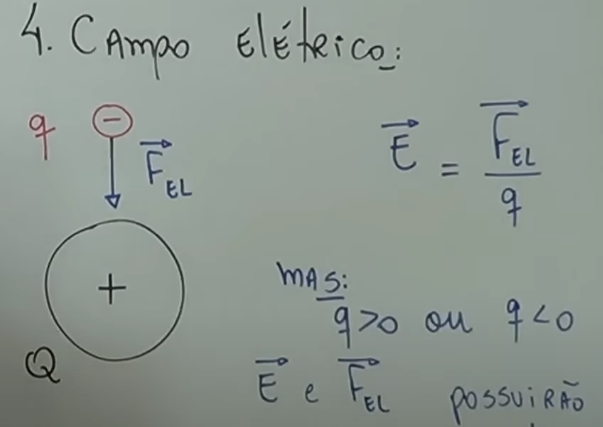 4. CAMPO ELÉTRICO:
q − F⃗EL
+
Q
E⃗ = F⃗EL / q
MAS:
q>0 ou q<0
E⃗ e F⃗EL POSSUIRÃO